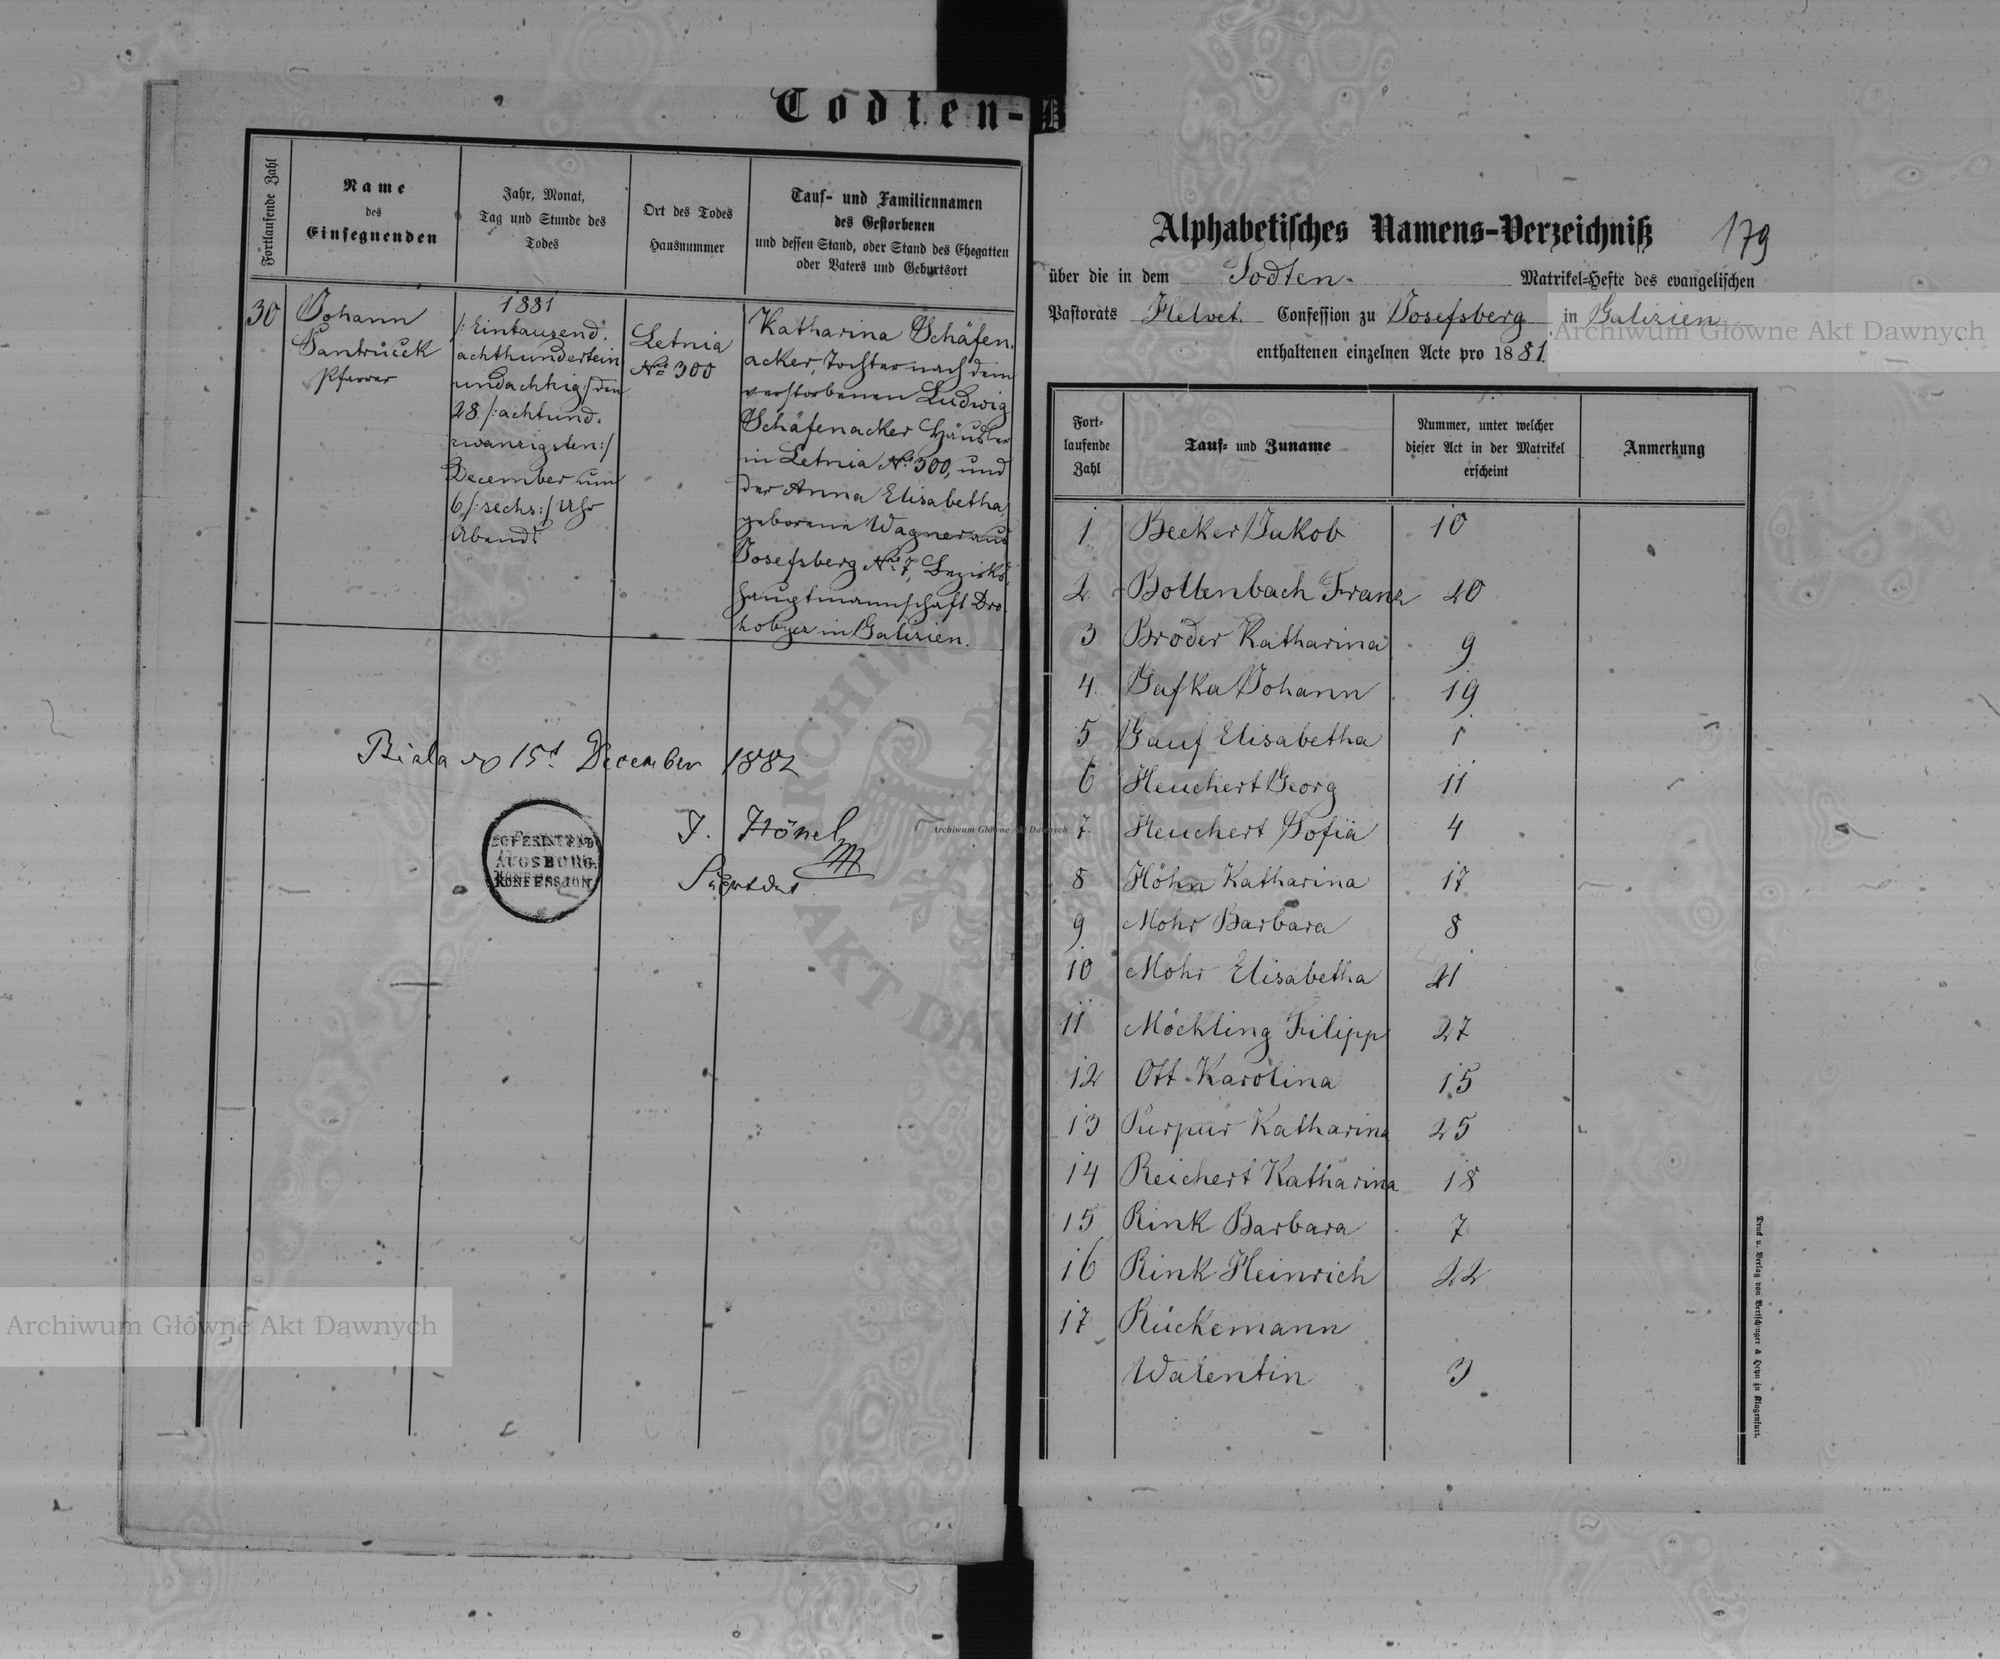 Todten-B
Fortlaufende Zahl
Name
des
Einsegnenden
Jahr, Monat,
Tag und Stunde des
Todes
Ort des Todes
Hausnummer
Tauf- und Familiennamen
des Gestorbenen
und dessen Stand, oder Stand des Ehegatten
oder Vaters und Geburtsort
30
Johann
Pfarrer
1881
/:Eintausend-
achthundertein
undachtzig:/ den
28./:achtund-
zwanzigsten:/
December um
6/:sechs:/ Uhr
Abends
Letnia
No 300
Katharina Schäfen-
acker, Tochter nach dem
verstorbenen Ludwig
Schäfenacker Häusler
in Letnia No 300, und
der Anna Elisabetha
geborene Wagner aus
Josefsberg No 7, Bezirks-
hauptmannschaft Dro-
hobycz in Galizien.
Biala 15t December 1882
J. Hönel
SUPERINTEND
AUGSBURG.
KONFESSION
Alphabetisches Namens-Verzeichniß
179
über die in dem Todten- Matrikel-Hefte des evangelischen
Pastorats Helvet. Confession zu Josefsberg in Galizien
enthaltenen einzelnen Acte pro 1881.
Fort-
laufende
Zahl
Tauf- und Zuname
Nummer, unter welcher
dieser Act in der Matrikel
erscheint
Anmerkung
1 Becker Jakob 10
2 Bollenbach Franz 20
3 Broder Katharina 9
4. Gafka Johann 19
5 Gauf Elisabetha 1
6 Heuchert Georg 11
7 Heuchert Sofia 4
8 Höhn Katharina 17
9 Mohr Barbara 8
10 Mohr Elisabetha 21
11 Möckling Filipp 27
12 Ott Karolina 15
13 Purpur Katharina 25
14 Reichert Katharina 18
15 Rink Barbara 7
16 Rink Heinrich 22
17 Rückemann
Walentin 3
Druck u. Verlag von Bertschinger & Heyn in Klagenfurt.
Archiwum Główne Akt Dawnych
Archiwum Główne Akt Dawnych
Archiwum Główne Akt Dawnych
ARCHIWUM
AKT DAWNYCH